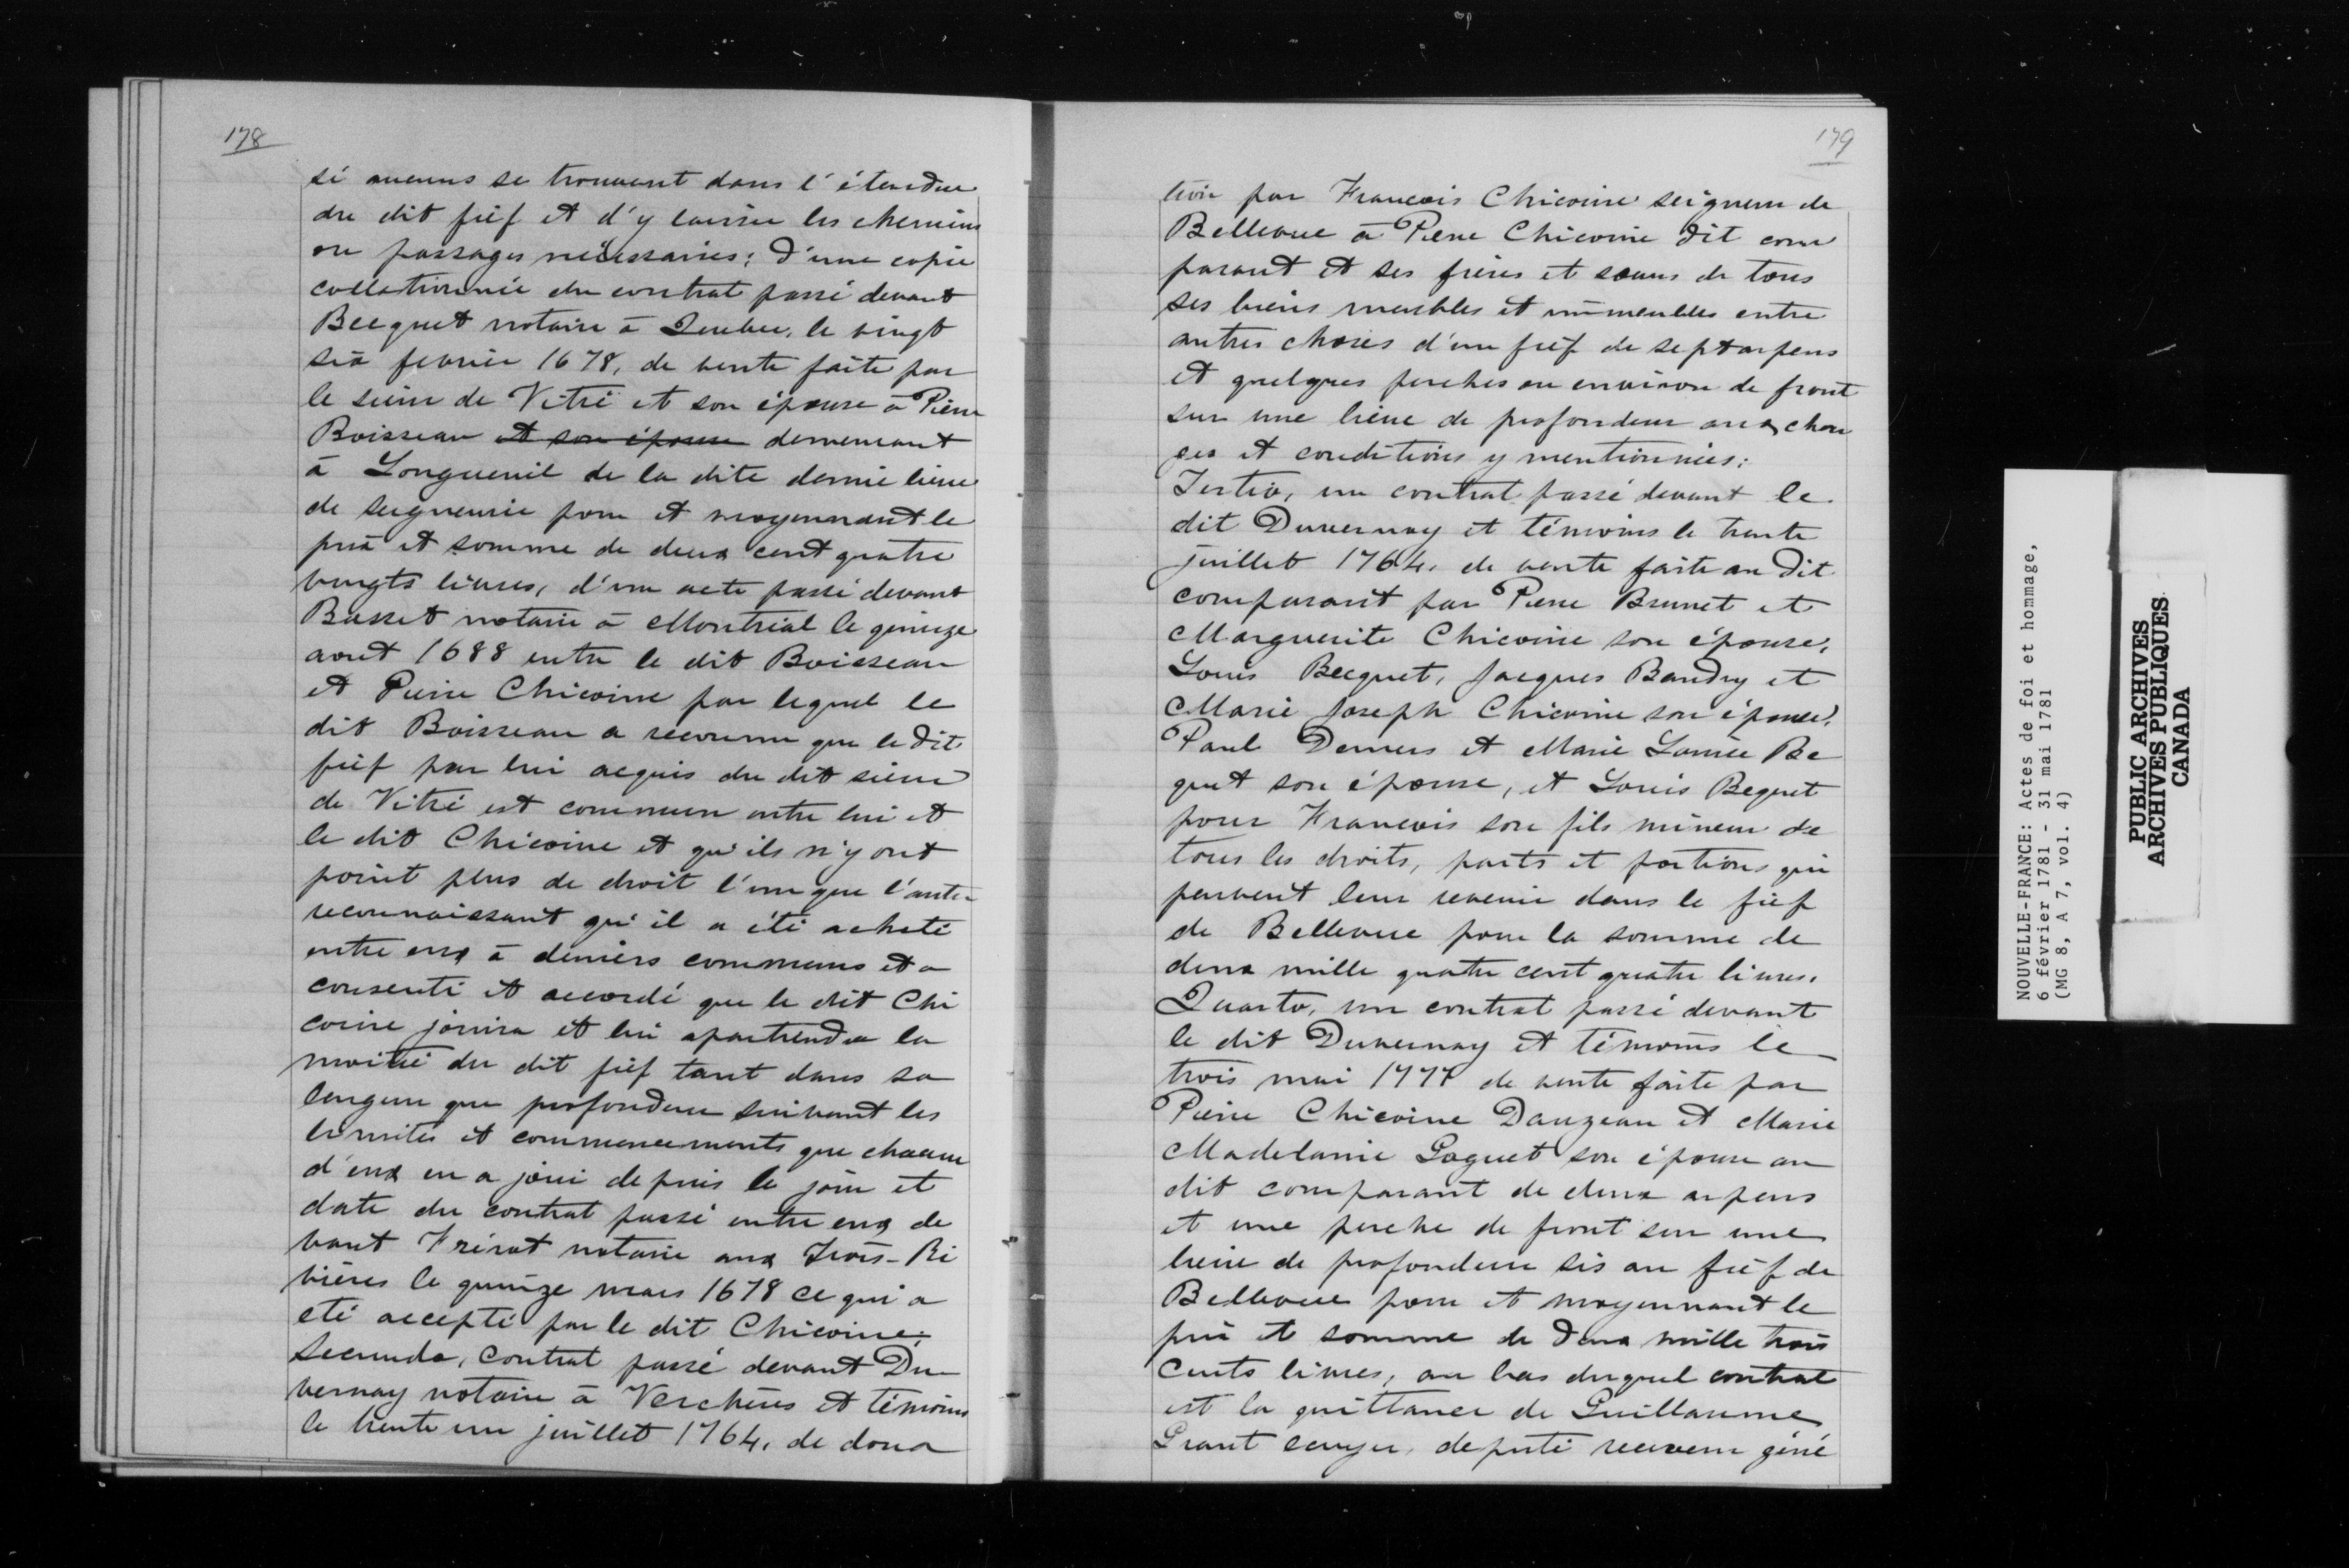 178
si aucuns se trouvent dans l'étendue
du dit fief et d'y laisser les chemins
ou passages nécessaires; d'une copie
collationnée du contrat passé devant
Becquet notaire à Quebec, le vingt
six fevrier 1678, de vente faite par
le sieur de Vitré et son épouse à Pierre
Boisseau et son épouse demeurant
à Longueuil de la dite demie lieue
de seigneurie pour et moyennant le
prix et somme de deux cent quatre
vingts livres, d'un acte passé devant
Basset notaire à Montréal le quinze
aout 1688 entre le dit Boisseau
et Pierre Chicoine par lequel le
dit Boisseau a reconnu que le dit
fief par lui acquis du dit sieur
de Vitré est commun entre lui et
le dit Chicoine et qu'ils n'y ont
point plus de droit l'un que l'autre
reconnaissant qu'il a été acheté
entre eux à deniers communs et a
consenti et accordé que le dit Chi
coine jouira et lui apartiendra la
moitié du dit fief tant dans sa
longeur que profondeur suivant les
limites et commencements que chacun
d'eux en a joui depuis le jour et
date du contrat passé entre eux de
vant Frérot notaire aux Trois-Ri
vières le quinze mars 1678 ce qui a
eté accepté par le dit Chicoine;
Secundo, contrat passé devant Du
vernay notaire à Verchères et témoins
le trente un juillet 1764, de dona
179
tion par Francois Chicoine seigneur de
Bellevue à Pierre Chicoine dit com
parant et ses frères et sœurs de tous
ses biens meubles et immeubles entre
autres choses d'un fief de sept arpens
et quelques perches ou environ de front
sur une lieue de profondeur aux char
ges et conditions y mentionnées;
Tertio, un contrat passé devant le
dit Duvernay et témoins le trente
juillet 1764, de vente faite au dit
comparant par Pierre Brunet et
Marguerite Chicoine son épouse,
Louis Becquet, Jacques Baudry et
Marie Joseph Chicoine son épouse,
Paul Demers et Marie Louise Be
quet son épouse, et Louis Bequet
pour Francois son fils mineur de
tous les droits, parts et portions qui
peuvent leur revenir dans le fief
de Bellevue pour la somme de
deux mille quatre cent quatre livres.
Quarto, un contrat passé devant
le dit Duvernay et témoins le
trois mai 1777 de vente faite par
Pierre Chicoine Dauzeau et Marie
Madelaine Paquet son épouse au
dit comparant de deux arpens
et une perche de front sur une
lieue de profondeur sis au fief de
Bellevue pour et moyennant le
prix et somme de deux mille trois
cents livres, au bas duquel contrat
est la quittance de Guillaume
Grant ecuyer, deputé receveur géné
NOUVELLE-FRANCE: Actes de foi et hommage,
6 février 1781 - 31 mai 1781
(MG 8, A 7, vol. 4)
PUBLIC ARCHIVES
ARCHIVES PUBLIQUES
CANADA